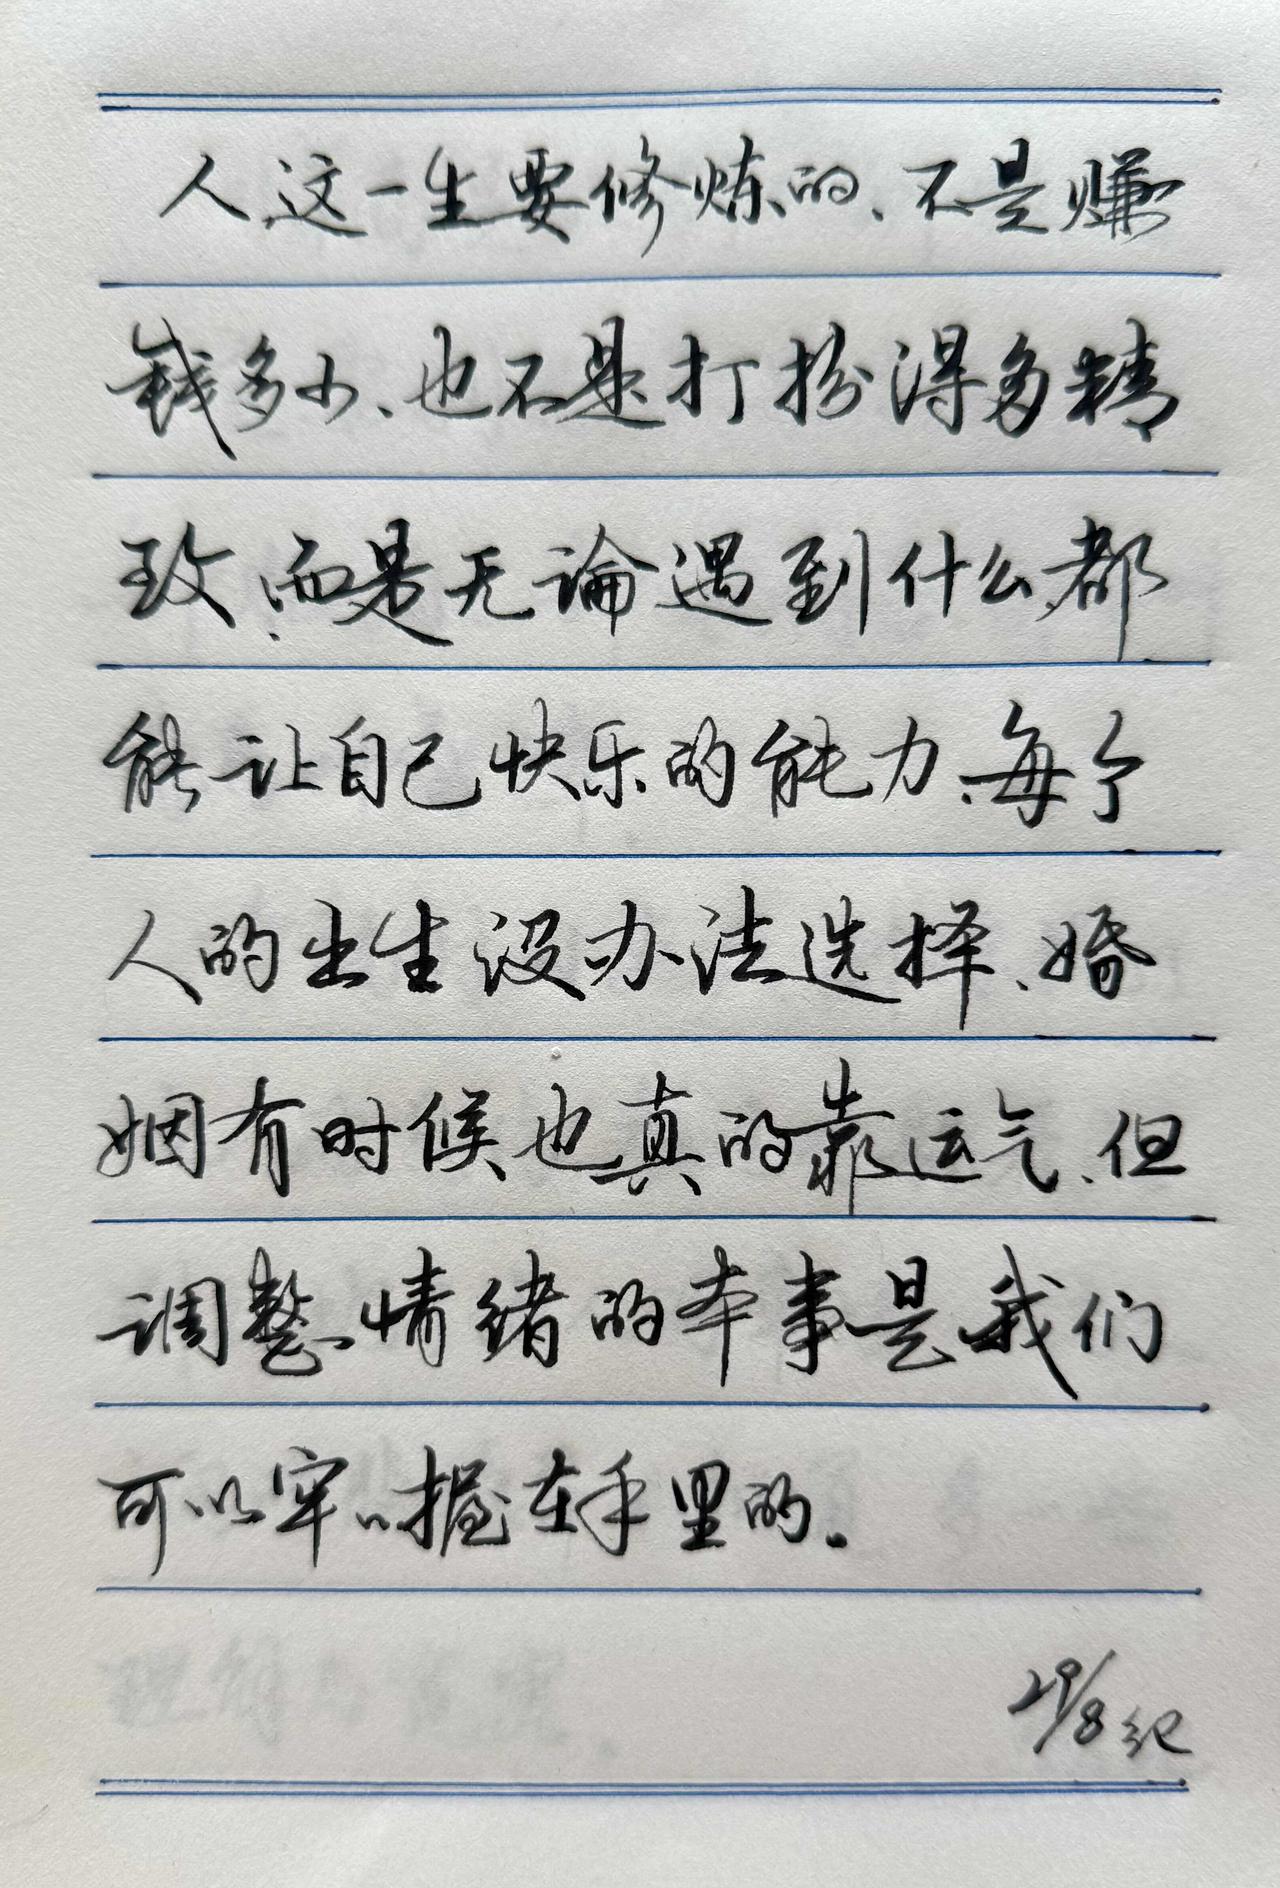 人这一生要修炼的、不是赚
钱多少、也不是打扮得多精
致、而是无論遇到什么、都
能让自己快乐的能力、每个
人的出生没办法选择、婚
姻有时候也真的靠运气、但
调整情绪的本事是我们
可以牢牢握在手里的.
29/8纪